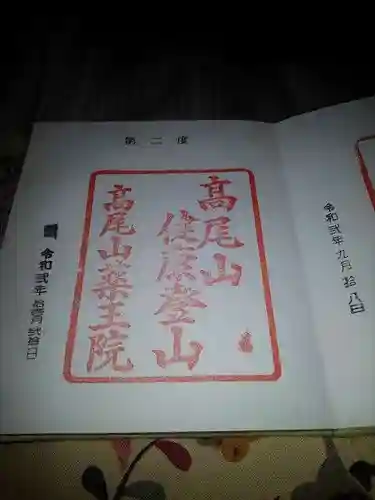 令和弐年九月拾八日
第二度
高尾山
健康登山
高尾山薬王院
令和弐年拾壱月弐拾日